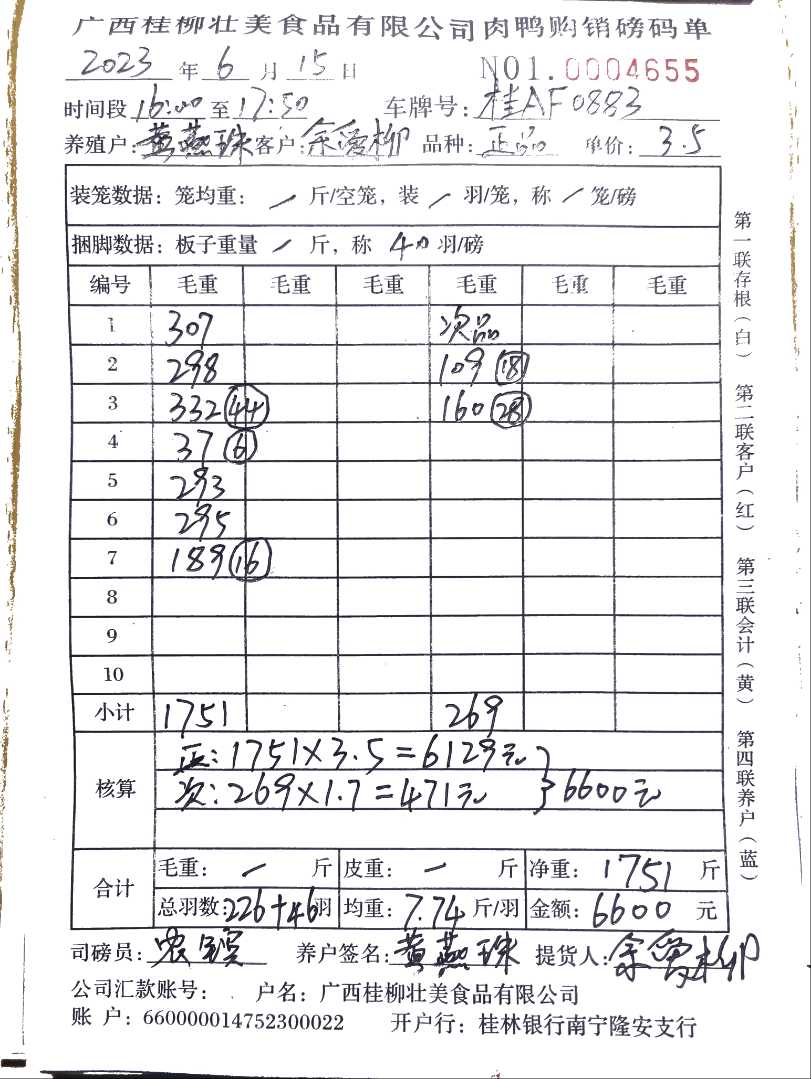 广西桂柳壮美食品有限公司肉鸭购销磅码单
2023年6月15日 NO1.0004655
时间段16:00至17:50 车牌号:桂AF0883
养殖户:黄燕珠 客户:余爱柳 品种:正品 单价:3.5
装笼数据:笼均重: / 斤/空笼,装 / 羽/笼,称 / 笼/磅
捆脚数据:板子重量 / 斤,称 40 羽/磅
编号 毛重 毛重 毛重 毛重 毛重 毛重
1 307 次品
2 298 109 (18)
3 332 (44) 160 (28)
4 37 (6)
5 293
6 295
7 189 (16)
8
9
10
小计 1751 269
核算
正:1751×3.5=6129元
次:269×1.7=471元 } 6600元
合计
毛重: / 斤 皮重: / 斤 净重: 1751 斤
总羽数:226+46羽 均重:7.74斤/羽 金额:6600元
司磅员: 养户签名:黄燕珠 提货人:余爱柳
公司汇款账号: 户名:广西桂柳壮美食品有限公司
账 户:660000014752300022 开户行:桂林银行南宁隆安支行
第一联存根(白) 第二联客户(红) 第三联会计(黄) 第四联养户(蓝)